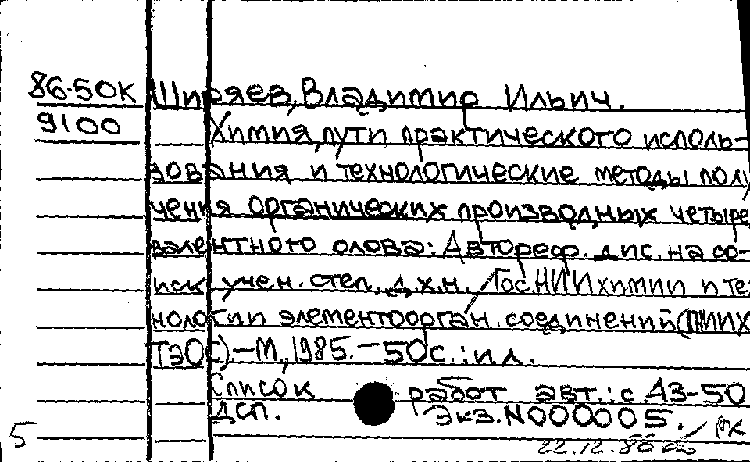 86-50К Ширяев, Владимир Ильич.
9100 Химия, пути практического исполь-
зования и технологические методы полу
чения органических производных четыре
валентного олова: Автореф. дис. на со-
иск. учен. степ. д.х.н. / Гос.НИИ химии и те
нологии элементоорган. соединений (ГНИИХ
ТЭОС).-М., 1985.-50с.: ил.
Список работ авт.: с 43-50
ДСП. Экз. N000005.
5
22.12.86